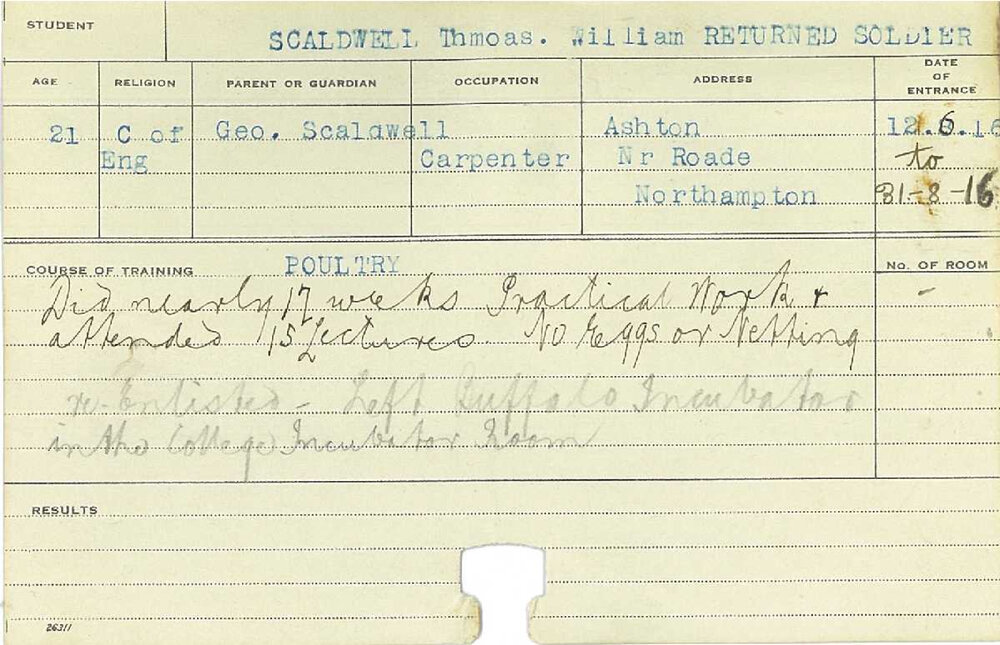 STUDENT
SCALDWELL Thmoas. William RETURNED SOLDIER
AGE RELIGION PARENT OR GUARDIAN OCCUPATION ADDRESS DATE OF ENTRANCE
21 C of Geo. Scaldwell Ashton 12.6.16
Eng Carpenter Nr Roade to
Northampton 31-8-16
COURSE OF TRAINING POULTRY No. OF ROOM
Did nearly 17 weeks Practical Work + -
attended 15 Lectures. No Eggs or Netting
re-Enlisted - Left Buffalo Incubator
in the College Incubator Room
RESULTS
26311